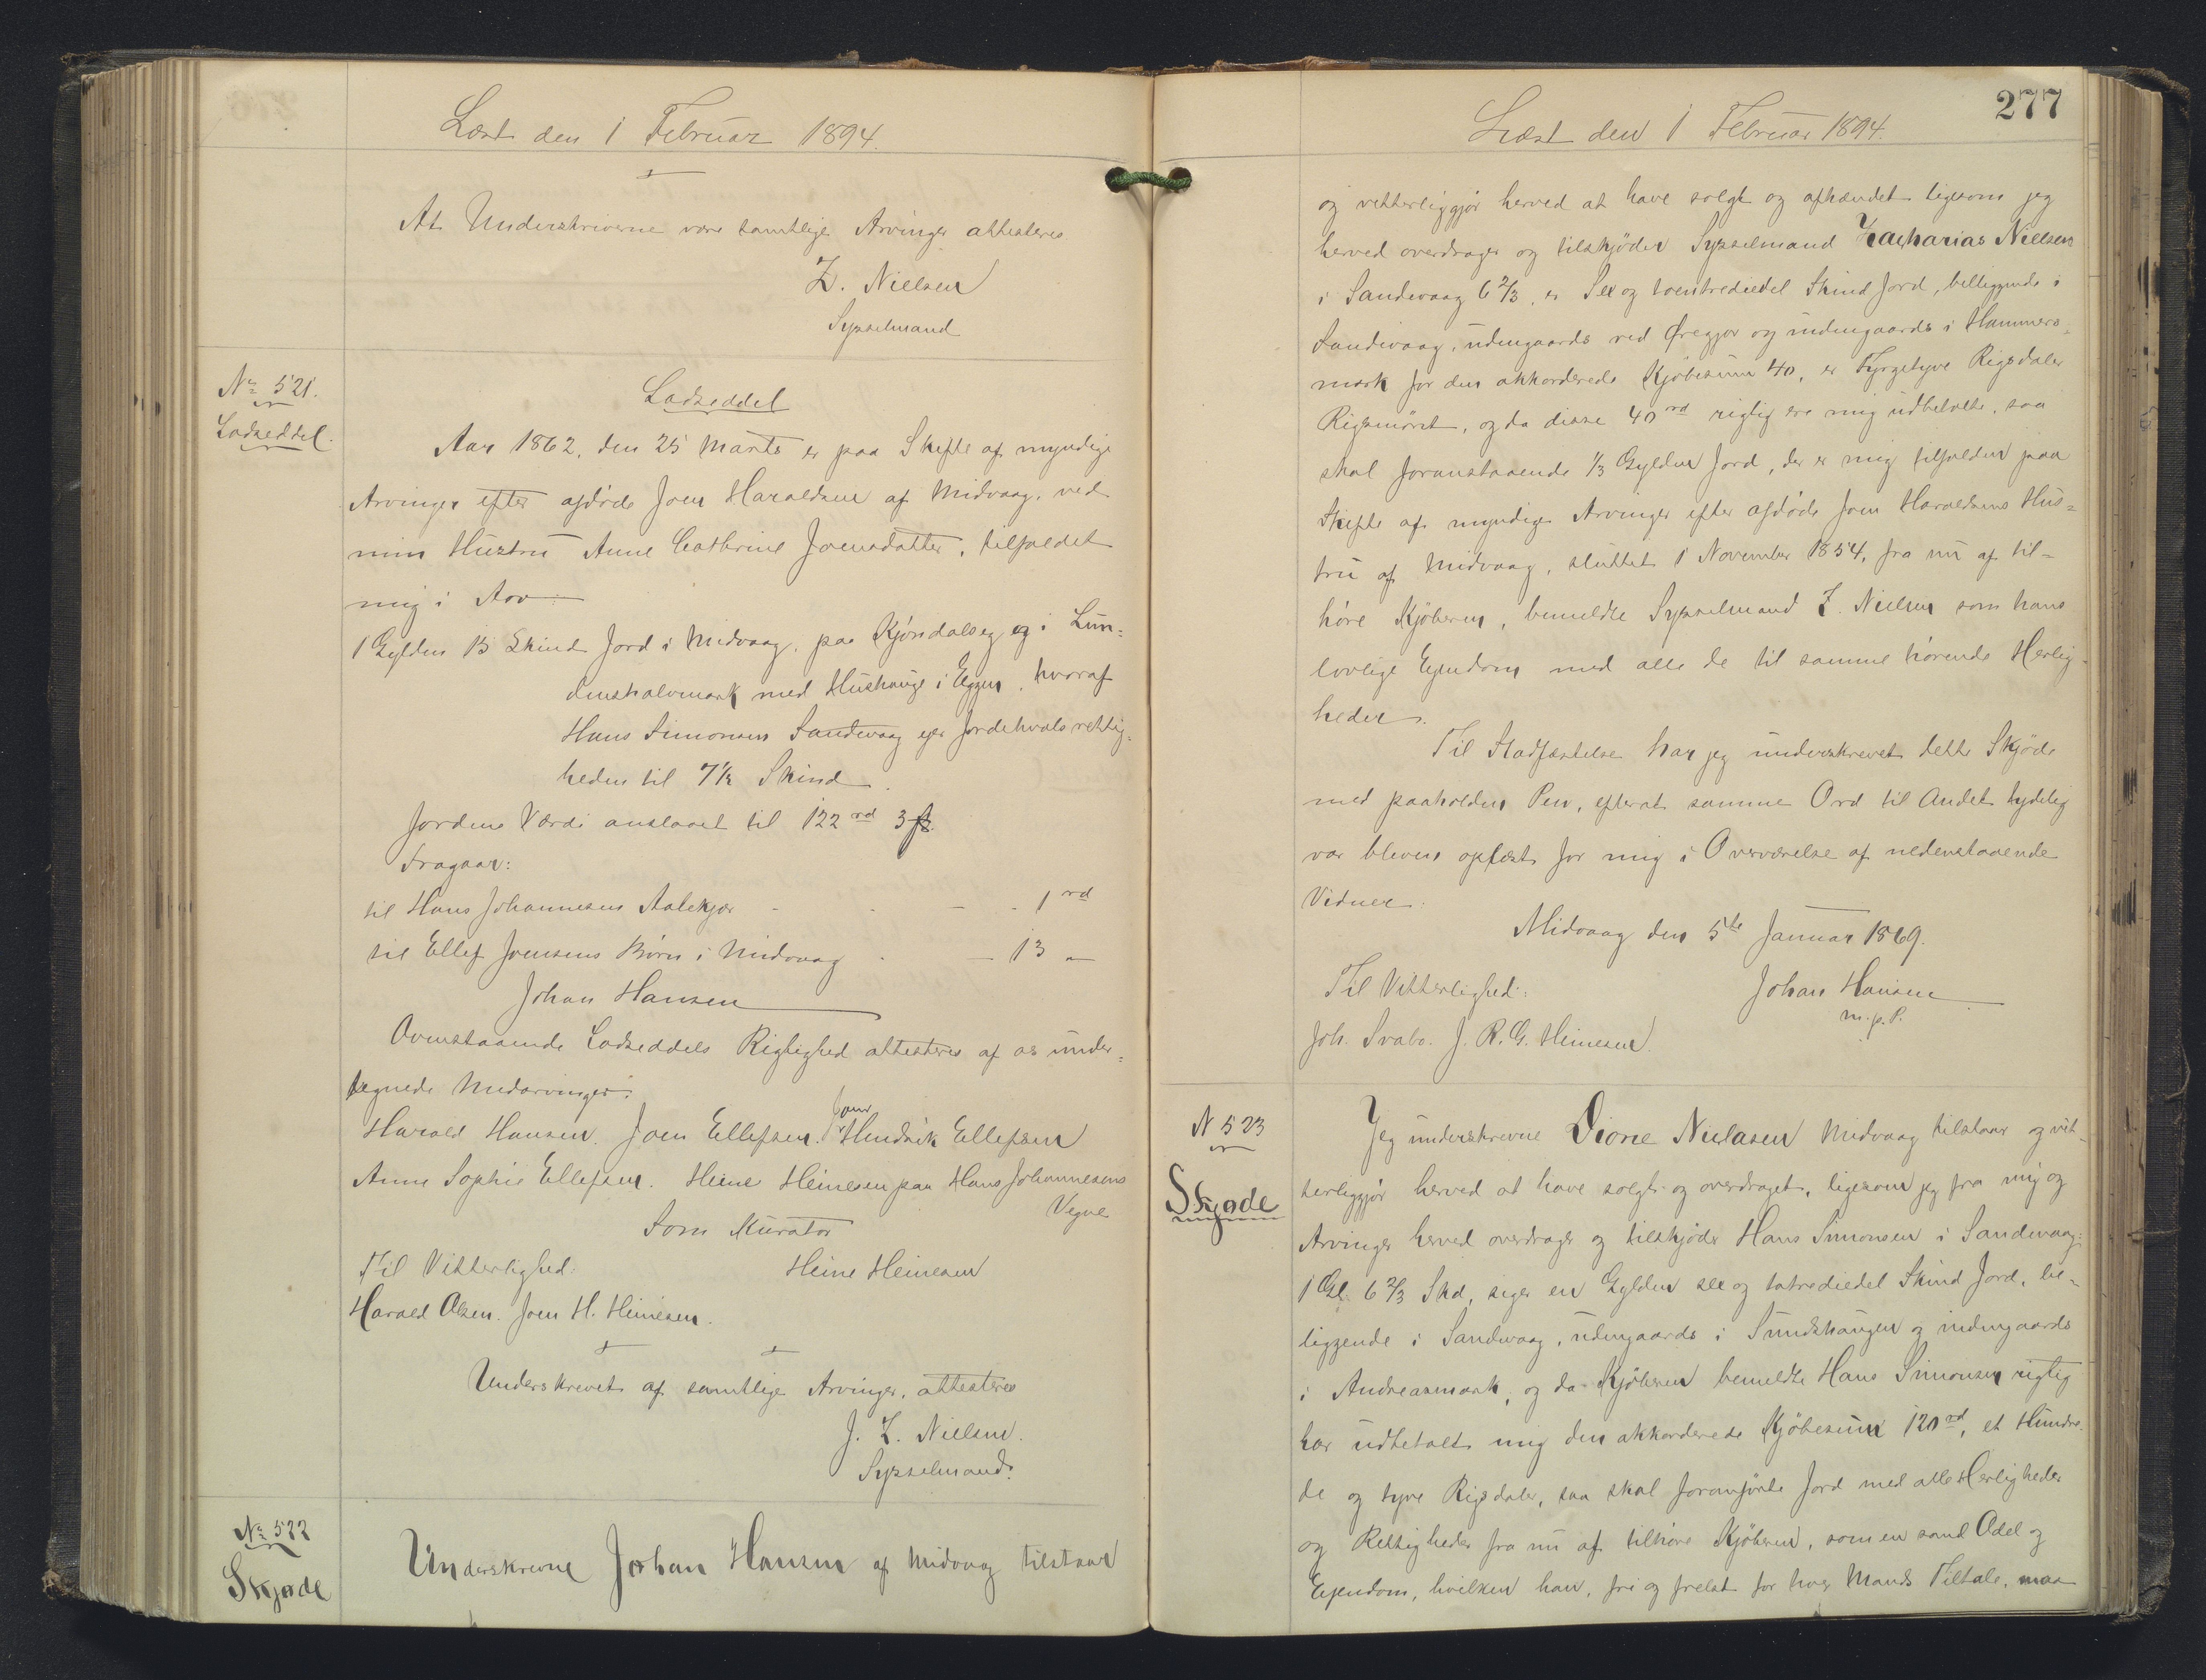 Læst den 1 Februar 1894.
At Underskriverne vare samtlige Arvinger attesteres
Z. Nielsen
Sysselmand
No 521.
Lodseddel.
Lodseddel
Aar 1862, den 25 Marts er paa Skifte af myndige
Arvinger efter afdøde Joen Haraldsen af Midvaag, ved
min Hustru Anne Cathrine Joensdatter, tilfaldet
mig i Arv:
1 Gylden 13 Skind Jord i Midvaag, paa Kjøndalseg og i Lun=
denshalvmark med Hushauge i Eggen, hvoraf
Hans Simonsen Sandevaag ejer Jordehvals rettig=
heden til 7 1/2 Skind.
Jordens Værdi anslaaet til 122 rd 3 ß
Fragaar:
til Hans Johannesen Aalekjær - - - - 1 rd
til Ellef Joensens Børn i Midvaag - - 13 "
Johan Hansen
Ovenstaaende Lodseddels Rigtighed attesteres af os under=
tegnede Medarvinger:
Harald Hansen. Joen Ellefsen. Hendrik Ellefsen
Anne Sophie Ellefsen. Heine Heinesen paa Hans Johannesens
Vegne
Som Kurator
Til Vitterlighed: Heine Heinesen
Harald Olsen. Joen H. Heinesen.
Underskrevet af samtlige Arvinger, attesteres
J. Z. Nielsen.
Sysselmand.
No 522
Skjøde
Underskrevne Johan Hansen af Midvaag tilstaar
277
Læst den 1 Februar 1894.
og vitterliggjør herved at have solgt og afhændet ligesom jeg
herved overdrager og tilskjøder Sysselmand Zacharias Nielsen
i Sandevaag 6 2/3, er Sex og toentrediedel Skind Jord, beliggende i
Sandevaag, udengaards ved Øregjov og indengaards i Hammers=
mark for den akkorderede Kjøbesum 40, er Fyrgetyve Rigsdaler
Rigsmønt, og da disse 40 rd rigtig ere mig udbetalte, saa
skal foranstaaende 1/3 Gylden Jord, der er mig tilfalden paa
Skifte af myndige Arvinger efter afdøde Joen Haraldsens Hus=
tru af Midvaag, sluttet 1 November 1854, fra nu af til=
høre Kjøberen, bemeldte Sysselmand Z. Nielsen som hans
lovlige Ejendom med alle de til samme hørende Herlig=
heder.
Til Stadfæstelse har jeg underskrevet dette Skjøde
med paaholden Pen, efterat samme Ord til andet tydelig
var bleven oplæst for mig i Overværelse af nedenstaaende
Vidner:
Midvaag den 5te Januar 1869.
Til Vitterlighed: Johan Hansen
m. p. P.
Joh. Svabo. J. R. G. Heinesen.
N 523
Skjøde
Jeg underskrevne Dione Nielasen Midvaag tilstaar og vit=
terliggjør herved at have solgt og overdraget, ligesom jeg fra mig og
Arvinger herved overdrager og tilskjøder Hans Simonsen i Sandevaag:
1 Gl. 6 2/3 Skd, siger en Gylden sex og totrediedel Skind Jord, be=
liggende i Sandevaag, udengaards i Sundshaugen og indengaards
i Andreasmark, og da Kjøberen bemeldte Hans Simonsen rigtig
har udbetalt mig den akkorderede Kjøbesum 120 rd, et Hundre
de og tyve Rigsdaler, saa skal foranførte Jord med alle Herligheder
og Rettigheder fra nu af tilhøre Kjøberen, som en sand Odel og
Ejendom, hvilken han, fri og frelst for hver Mands Tiltale, maa